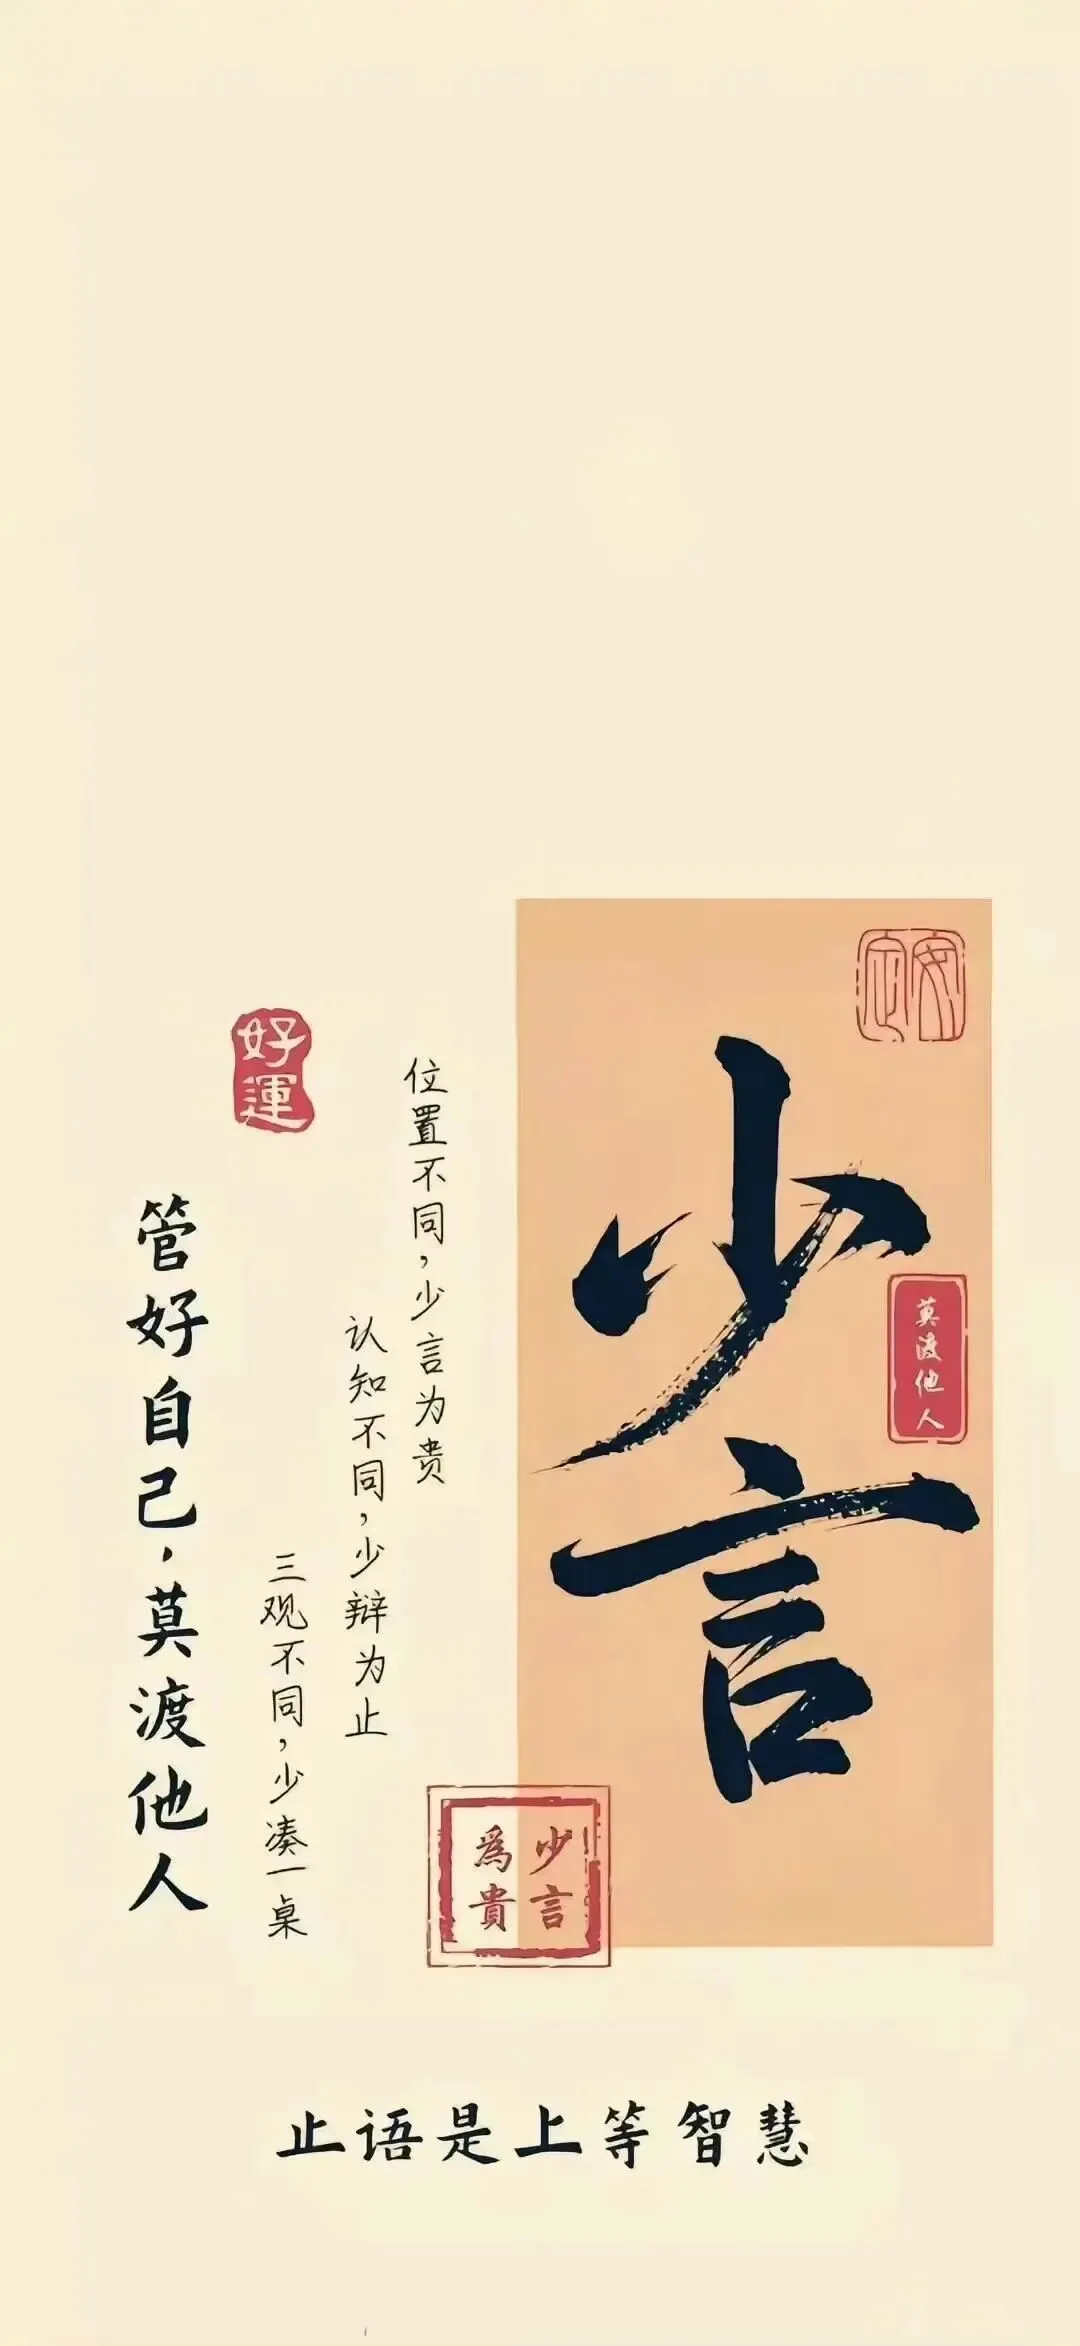 安定
少言
莫渡他人
少言
為貴
位置不同，少言为贵
认知不同，少辩为止
三观不同，少凑一桌
好運
管好自己，莫渡他人
止语是上等智慧